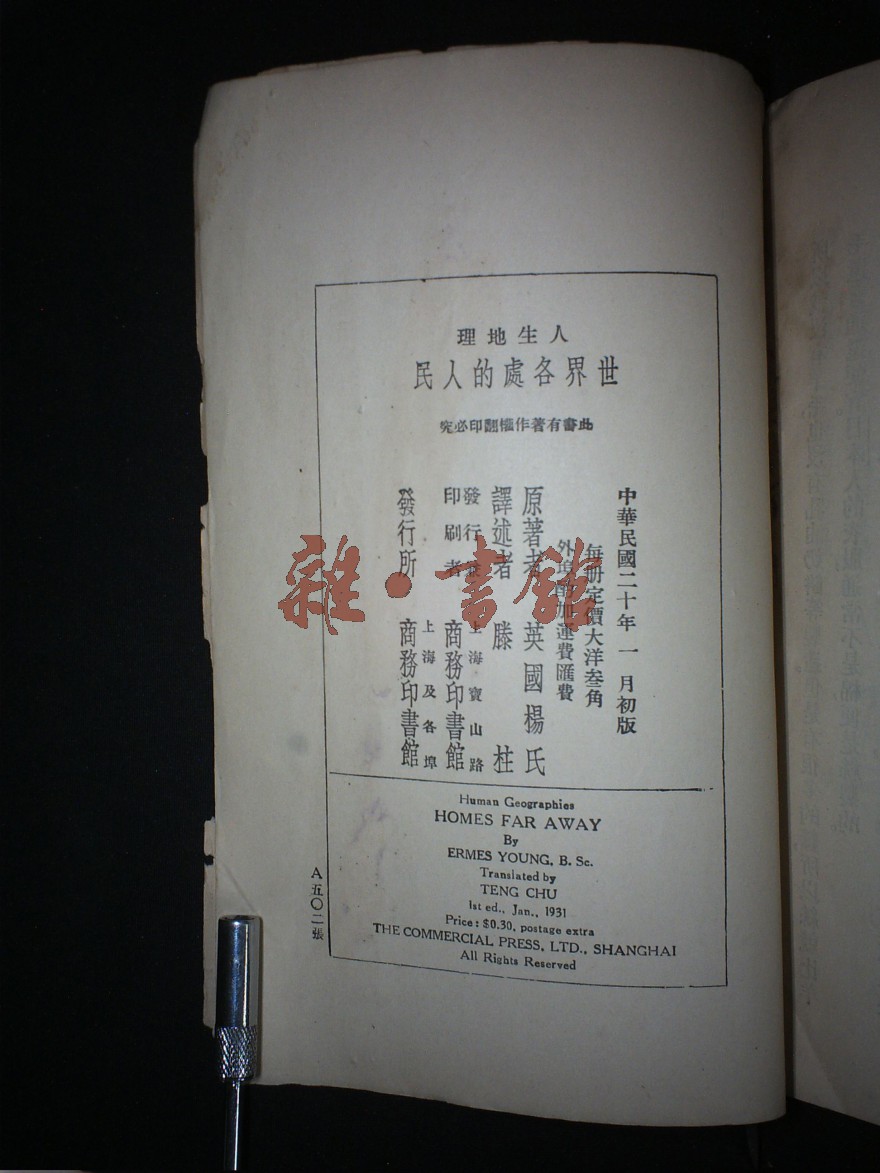 人生地理
世界各處的人民
此書有著作權翻印必究
中華民國二十年一月初版
每册定價大洋叁角
外埠酌加運費匯費
原著者 英國楊氏
譯述者 滕柱
發行兼印刷者 上海寶山路 商務印書館
發行所 上海及各埠 商務印書館
Human Geographies
HOMES FAR AWAY
By
ERMES YOUNG, B. Sc.
Translated by
TENG CHU
1st ed., Jan., 1931
Price: $0.30, postage extra
THE COMMERCIAL PRESS, LTD., SHANGHAI
All Rights Reserved
A五〇二張
雜·書館